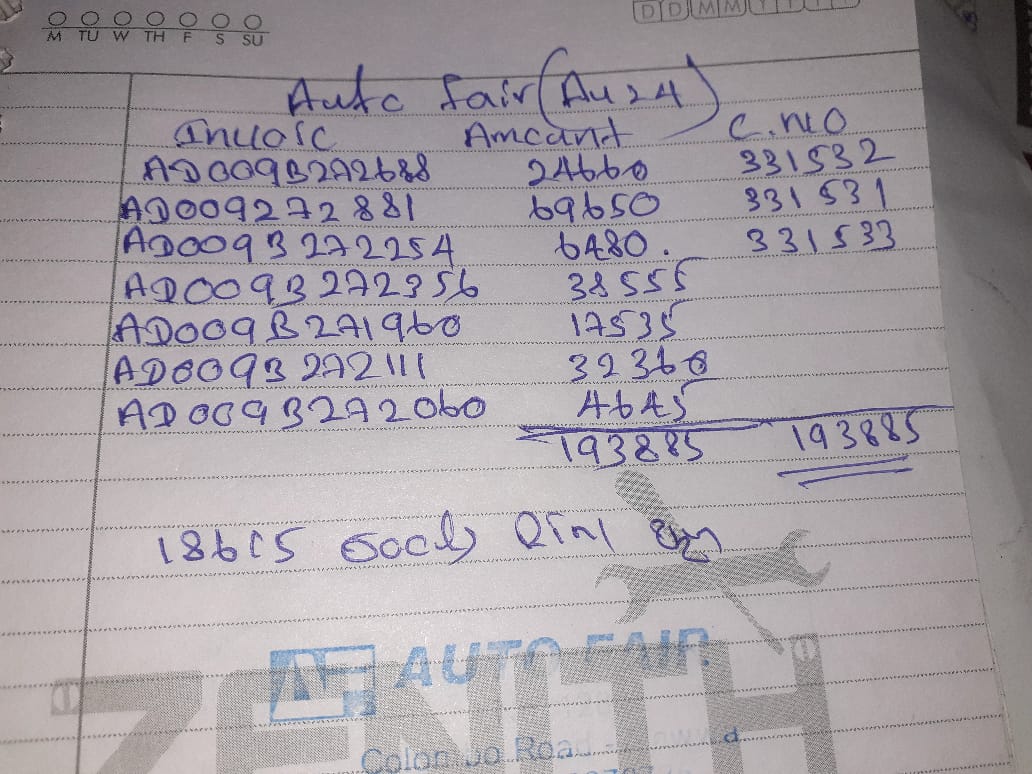 M TU W TH F S SU
D D M M Y Y Y Y
Auto fair (Au 24)
Invoic Amount C.NO
AD009B272688 24660 331532
AD009272881 69650 331531
AD009B272254 6480. 331533
AD009B272356 38555
AD009B271960 17535
AD009B272111 32360
AD009B272060 4645
193885 193885
AF AUTO FAIR
ZENITH
Colombo Road